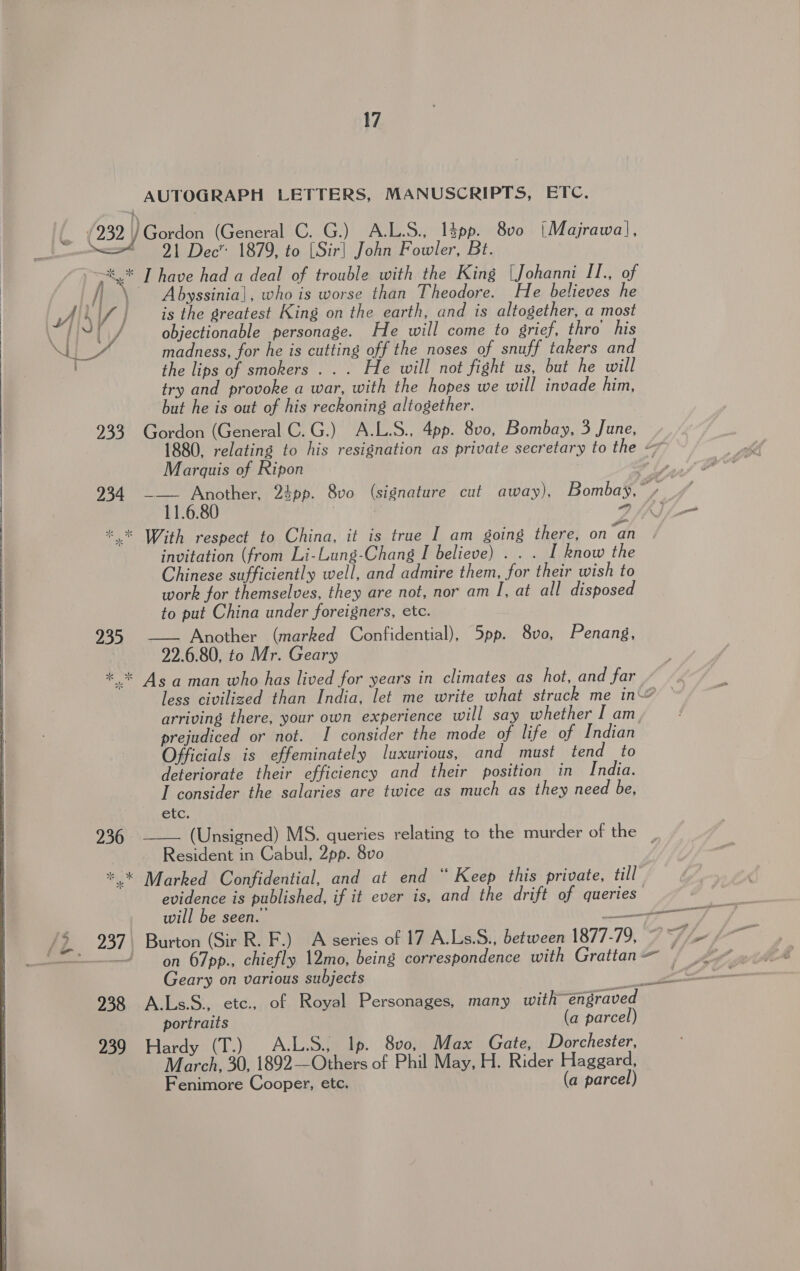 17
AUTOGRAPH LETTERS, MANUSCRIPTS, ETC.
232 Gordon (General C. G.) A.L.S., 1½pp. 8vo [Majrawa],
21 Decr. 1879, to [Sir] John Fowler, Bt.
*** I have had a deal of trouble with the King [Johanni II., of
Abyssinia], who is worse than Theodore. He believes he
is the greatest King on the earth, and is altogether, a most
objectionable personage. He will come to grief, thro' his
madness, for he is cutting off the noses of snuff takers and
the lips of smokers . . . He will not fight us, but he will
try and provoke a war, with the hopes we will invade him,
but he is out of his reckoning altogether.
233 Gordon (General C. G.) A.L.S., 4pp. 8vo, Bombay, 3 June,
1880, relating to his resignation as private secretary to the
Marquis of Ripon
234 —— Another, 2½pp. 8vo (signature cut away), Bombay,
11.6.80
*** With respect to China, it is true I am going there, on an
invitation (from Li-Lung-Chang I believe) . . . I know the
Chinese sufficiently well, and admire them, for their wish to
work for themselves, they are not, nor am I, at all disposed
to put China under foreigners, etc.
235 —— Another (marked Confidential), 5pp. 8vo, Penang,
22.6.80, to Mr. Geary
*** As a man who has lived for years in climates as hot, and far
less civilized than India, let me write what struck me in
arriving there, your own experience will say whether I am
prejudiced or not. I consider the mode of life of Indian
Officials is effeminately luxurious, and must tend to
deteriorate their efficiency and their position in India.
I consider the salaries are twice as much as they need be,
etc.
236 —— (Unsigned) MS. queries relating to the murder of the
Resident in Cabul, 2pp. 8vo
*** Marked Confidential, and at end "Keep this private, till
evidence is published, if it ever is, and the drift of queries
will be seen."
237 Burton (Sir R. F.) A series of 17 A.Ls.S., between 1877-79,
on 67pp., chiefly 12mo, being correspondence with Grattan
Geary on various subjects
238 A.Ls.S., etc., of Royal Personages, many with engraved
portraits (a parcel)
239 Hardy (T.) A.L.S., 1p. 8vo, Max Gate, Dorchester,
March, 30, 1892—Others of Phil May, H. Rider Haggard,
Fenimore Cooper, etc. (a parcel)